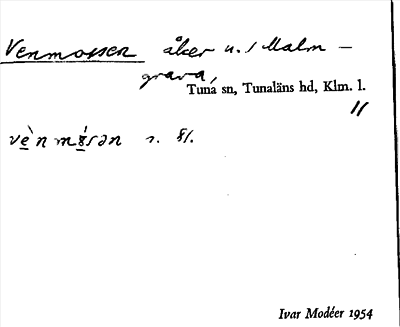 Venmossen åker u. / Malm –
grava,
Tuna sn, Tunaläns hd, Klm. l.
//
vè̱n mɷ̱́sən
Ivar Modéer 1954